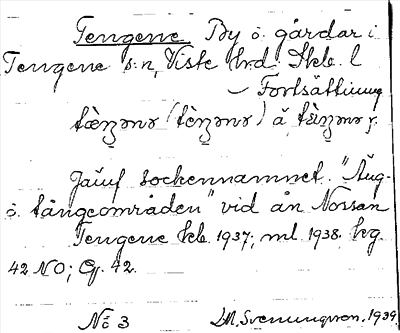 Tengene By o. gårdar i
Tengene s:n, Viste hrd. Skb. l
— Fortsättning
Jämf sockennamnet. "Äng-
o. tångeområden" vid ån Nossan
Tengene kb. 1937; ml 1938. hrg.
42 NO; Gj. 42.
No 3 D.M. Svenungsson. 1939